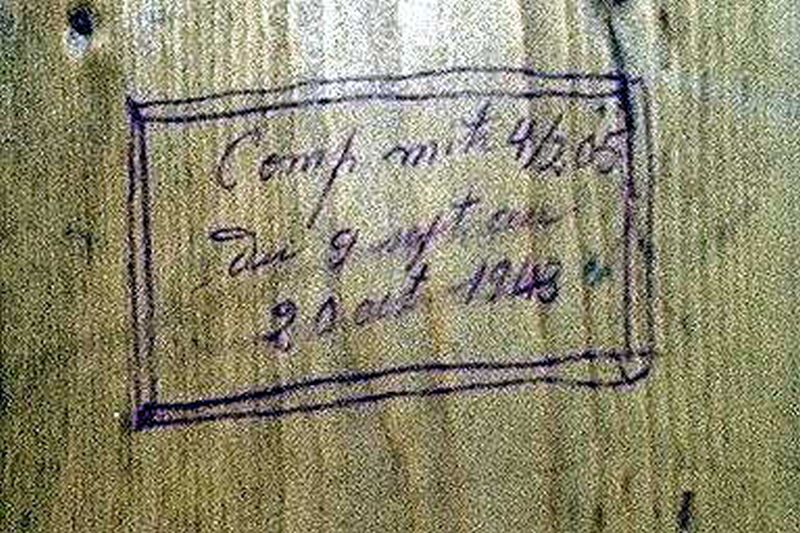 Comp mitr 4/205
du 9 sept au
2 0 oct 1943